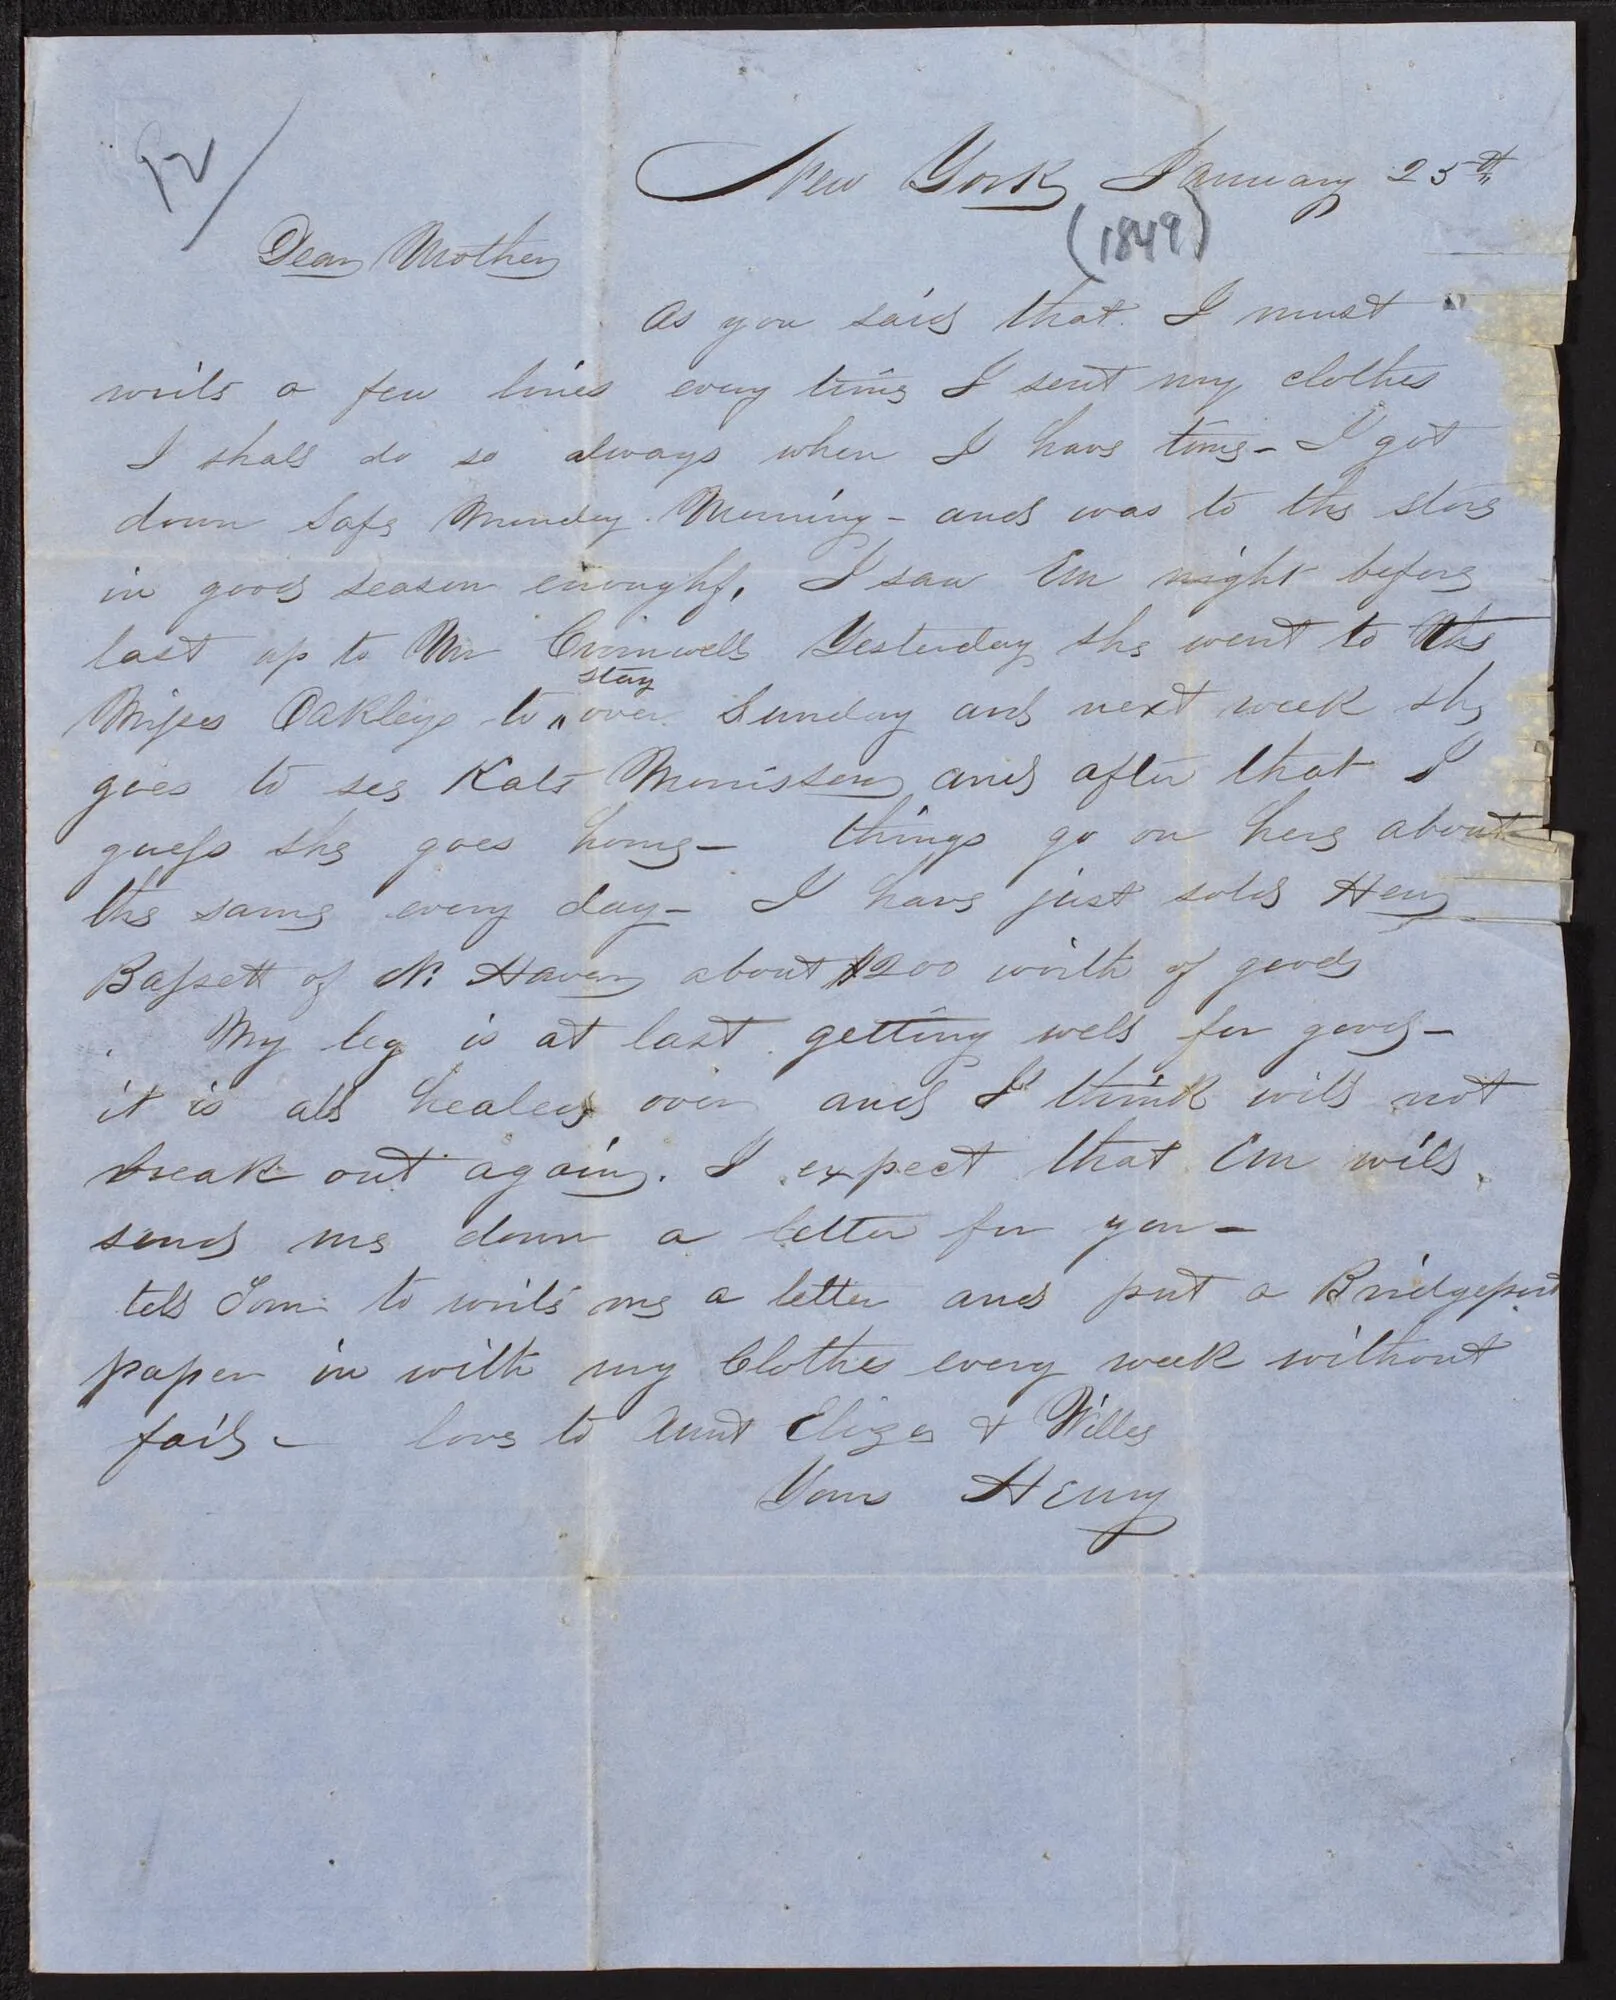 92/
New York January 25th
(1849)
Dear Mother
As you said that I must
write a few lines every time I sent my clothes
I shall do so always when I have time - I got
down safe Monday Morning - and was to the store
in good season enoughf, I saw Em night before
last up to Mr Cromwells Yesterday she went to the
stay
Misses Oakleys to " over Sunday and next week she
goes to see Kate Morrisson and after that I
guess she goes home - things go on here about
the same every day - I have just sold Heny
Bassett of N. Haven about $200 worth of goods
My leg is at last getting well for good -
it is all healed over and I think will not
break out again. I expect that Em will
send me down a letter for you -
tell Tom to write me a letter and put a Bridgeport
paper in with my Clothes every week without
fail - love to Aunt Eliza & Willey
Yours Henry